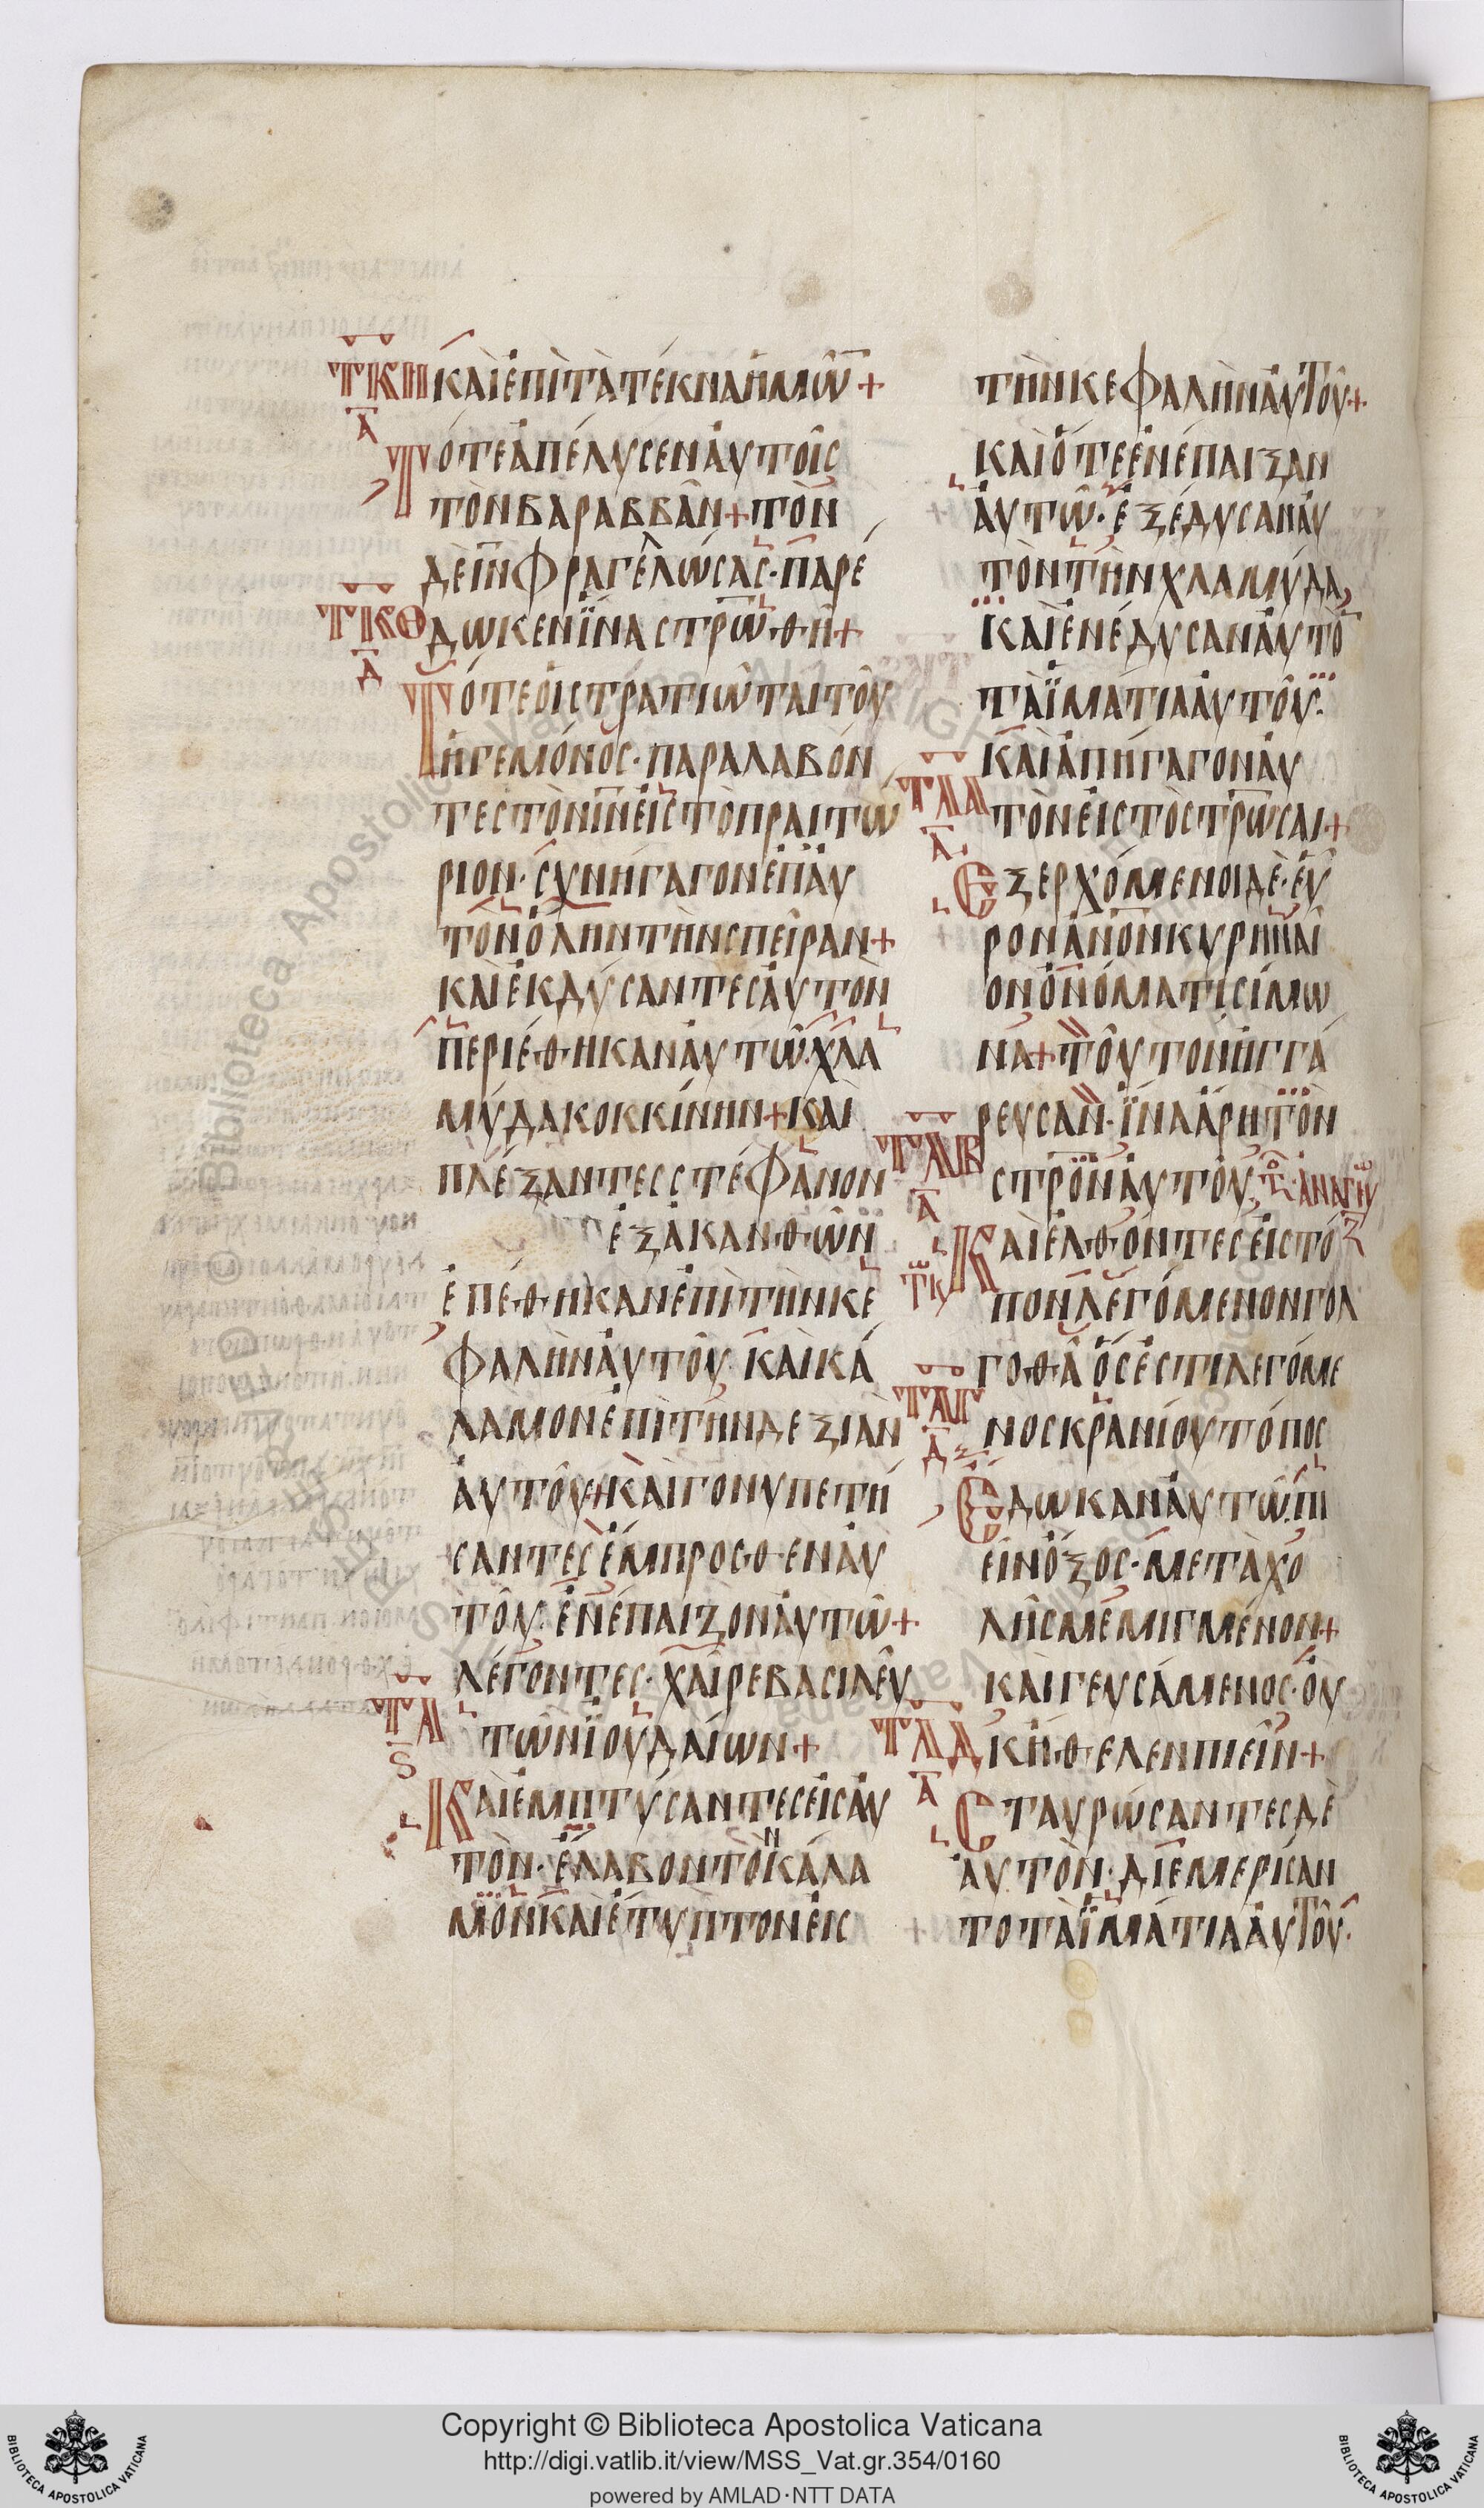 ΤΚΗ ΚΑῚ ἘΠῚ ΤᾺ ΤΈΚΝΑ ἩΜΩ͂ +
Α
ΤΌΤΕ ἈΠΈΛΥΣΕΝ ἈΥΤΟΙ͂Σ
ΤῸΝ ΒΑΡΑΒΒΑ͂Ν + ΤῸΝ
ΔῈ ΙΝ ΦΡΑΓΕΛΏΣΑΣ · ΠΑΡΈ
ΤΚΘ ΔΩΚΕΝ ἽΝΑ ΣΤΡΩΘΗ͂ +
Δ
ΤΌΤΕ ὈΙ ΣΤΡΑΤΙΩ͂ΤΑΙ ΤΟΥ͂
ἩΓΕΜΌΝΟΣ · ΠΑΡΑΛΑΒΌΝ
ΤΕΣ ΤῸΝ ΙΝ ἘΙΣ ΤῸ ΠΡΑΙΤΏ
ΡΙΟΝ · ΣΥΝΉΓΑΓΟΝ ἘΠ ἈΥ
ΤῸΝ ὍΛΗΝ ΤῊΝ ΣΠΕΙ͂ΡΑΝ +
ΚΑῚ ἘΚΔΎΣΑΝΤΕΣ ἈΥΤῸΝ
ΠΕΡΙΈΘΗΚΑΝ ἈΥΤΩ͂ · ΧΛΑ
ΜΎΔΑ ΚΟΚΚΊΝΗΝ + ΚΑῚ
ΠΛΈΞΑΝΤΕΣ ΣΤΈΦΑΝΟΝ
ἘΞ ἈΚΑΝΘΩ͂Ν
ἘΠΈΘΗΚΑΝ ἘΠῚ ΤῊΝ ΚΕ
ΦΑΛῊΝ ἈΥΤΟΥ͂ · ΚΑῚ ΚΆ
ΛΑΜΟΝ ἘΠῚ ΤῊΝ ΔΕΞΙᾺΝ
ἈΥΤΟΥ͂ + ΚΑῚ ΓΟΝΥΠΕΤΉ
ΣΑΝΤΕΣ ἜΜΠΡΟΣΘΕΝ ἈΥ
ΤΟΥ͂ · ἘΝΈΠΑΙΖΟΝ ἈΥΤΩ͂ +
ΛΈΓΟΝΤΕΣ · ΧΑΙ͂ΡΕ ΒΑΣΙΛΕΥ͂
ΤΛ ΤΩ͂Ν ἸΟΥΔΑΊΩΝ +
Ϛ
ΚΑῚ ἘΜΠΤΎΣΑΝΤΕΣ ἘΙΣ ἈΥ
ΤῸΝ · ἜΛΑΒΟΝ ΤῸΝ ΚΆΛΑ
ΜΟΝ ΚΑῚ ἜΤΥΠΤΟΝ ἘΙΣ
ΤῊΝ ΚΕΦΑΛῊΝ ἈΥΤΟΥ͂ +
ΚΑῚ ὍΤΕ ἘΝΈΠΑΙΞΑΝ
ἈΥΤΩ͂ · ἘΞΈΔΥΣΑΝ ἈΥ
ΤῸΝ ΤῊΝ ΧΛΑΜΎΔΑ
ΚΑῚ ἘΝΈΔΥΣΑΝ ἈΥΤῸ
ΤᾺ ἹΜΆΤΙΑ ἈΥΤΟΥ͂ ·
ΚΑῚ ἈΠΉΓΑΓΟΝ ἈΥ
ΤΛΑ ΤῸΝ ἘΙΣ ΤῸ ΣΤΡΩΣΑΙ +
Α
ἘΞΕΡΧΌΜΕΝΟΙ ΔῈ · ἙΥ͂
ΡΟΝ ἈΝΟΝ ΚΥΡΗΝΑΙ͂
ΟΝ ὈΝΌΜΑΤΙ ΣΊΜΩ
ΝΑ + ΤΟΥ͂ΤΟΝ ἨΓΓΆ
ΡΕΥΣΑΝ · ἽΝΑ ἌΡΗ ΤῸΝ
ΤΛΒ ΣΤΡΟΝ ἈΥΤΟΥ͂
Α
ΚΑῚ ἘΛΘΌΝΤΕΣ ἘΙΣ ΤΌ
ΠΟΝ ΛΕΓΌΜΕΝΟΝ ΓΟΛ
ΓΟΘΑ͂ ὍΣ ἘΣΤΙ ΛΕΓΌΜΕ
ΤΛΓ ΝΟΣ ΚΡΑΝΊΟΥ ΤΌΠΟΣ
Δ
ἜΔΩΚΑΝ ἈΥΤΩ͂ ΠΙ
ΕΙ͂Ν ὌΞΟΣ · ΜΕΤᾺ ΧΟ
ΛΗ͂Σ ΜΕΜΙΓΜΈΝΟΝ +
ΚΑῚ ΓΕΥΣΆΜΕΝΟΣ · ὈΥ
ΤΛΔ Κ ἬΘΕΛΕΝ ΠΙΕΙ͂Ν +
Α
ΣΤΑΥΡΏΣΑΝΤΕΣ ΔῈ
ἈΥΤῸΝ · ΔΙΕΜΕΡΊΣΑΝ
ΤΟ ΤᾺ ἹΜΆΤΙΑ ἈΥΤΟΥ͂ ·
Copyright © Biblioteca Apostolica Vaticana
http://digi.vatlib.it/view/MSS_Vat.gr.354/0160
powered by AMLAD·NTT DATA
BIBLIOTECA APOSTOLICA VATICANA
BIBLIOTECA APOSTOLICA VATICANA